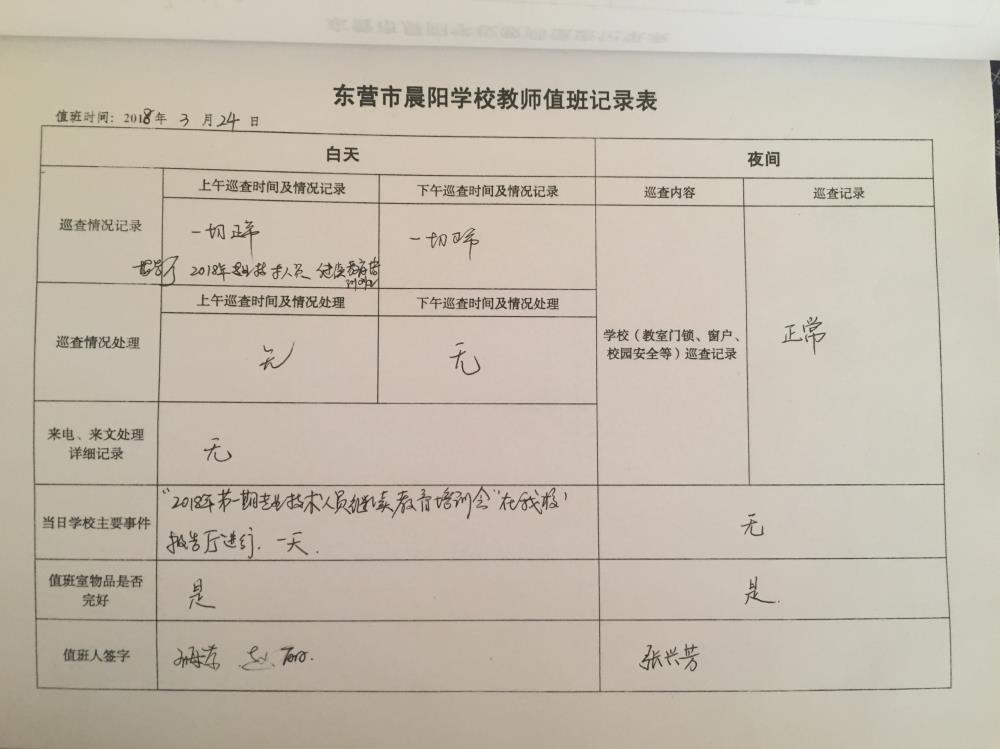 东营市晨阳学校教师值班记录表
值班时间：2018年 3 月 24 日
白天
夜间
上午巡查时间及情况记录
下午巡查时间及情况记录
巡查内容
巡查记录
巡查情况记录
一切正常
一切正常
报告厅 2018年专业技术人员继续教育培
训会
上午巡查时间及情况处理
下午巡查时间及情况处理
巡查情况处理
无
无
学校（教室门锁、窗户、
校园安全等）巡查记录
正常
来电、来文处理
详细记录
无
当日学校主要事件
"2018年第一期专业技术人员继续教育培训会"在我校
报告厅进行，一天.
无
值班室物品是否
完好
是
是.
值班人签字
张兴芳